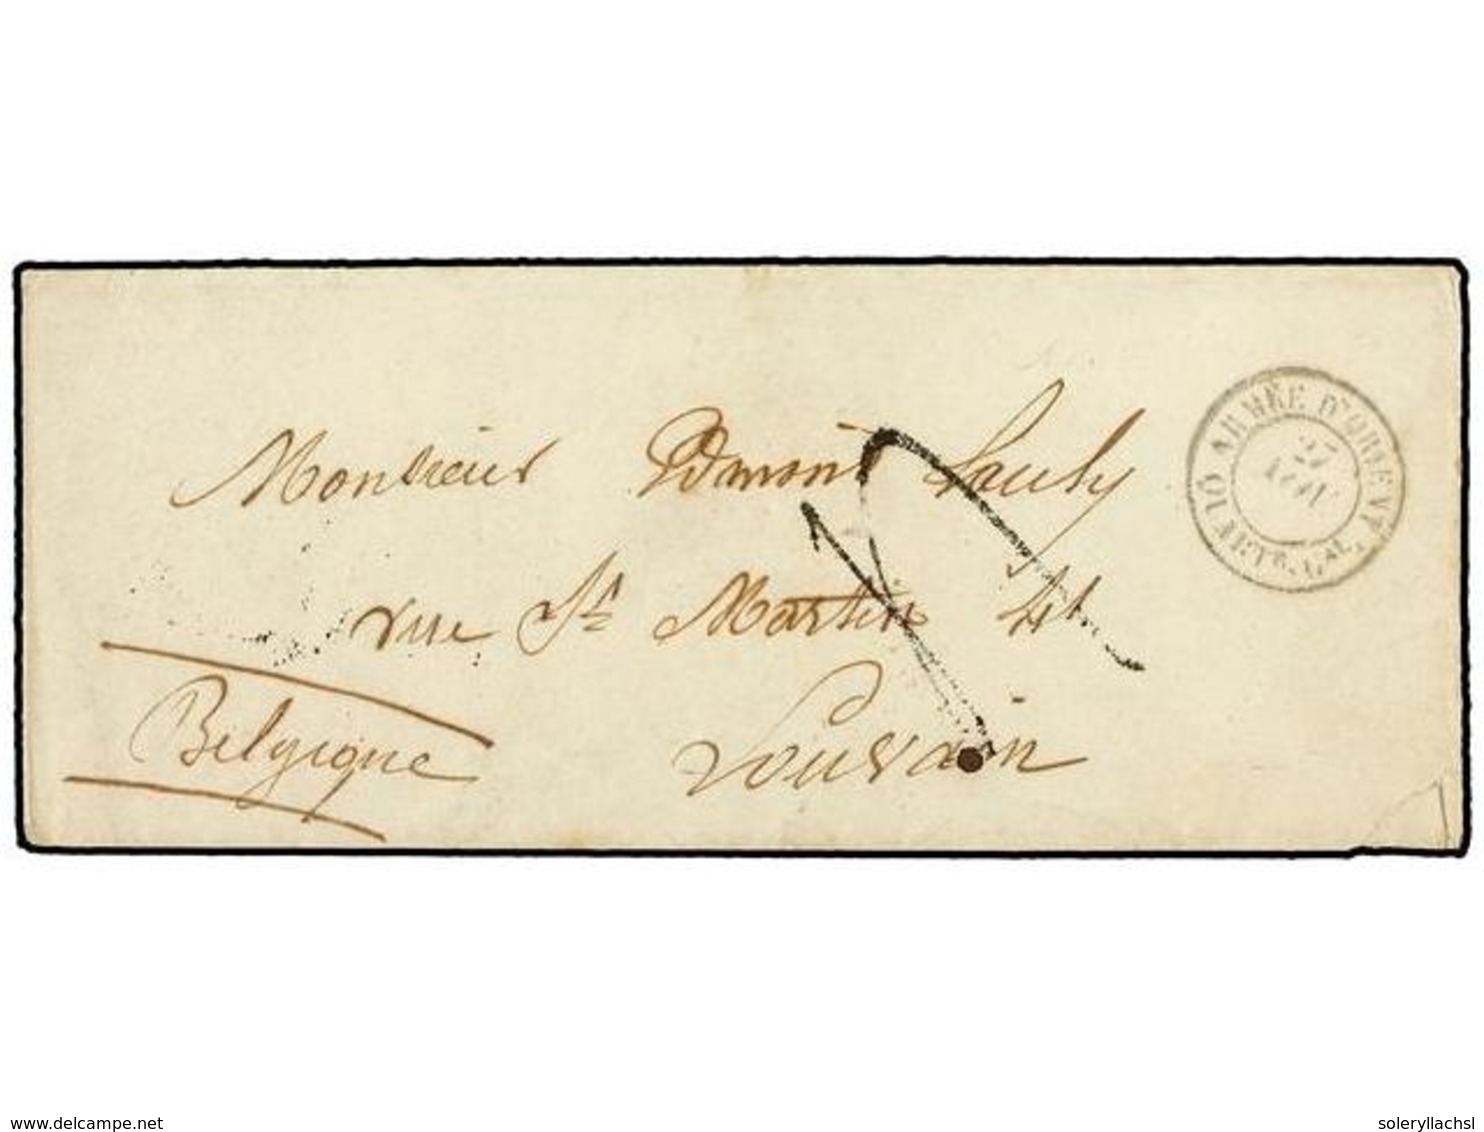 Monsieur Edmont Pauly
rue St Martin 41
Louvain
Belgique
ARMÉE D'ORIENT
27
Qr GAL
delcampe.net
soleryllachsl